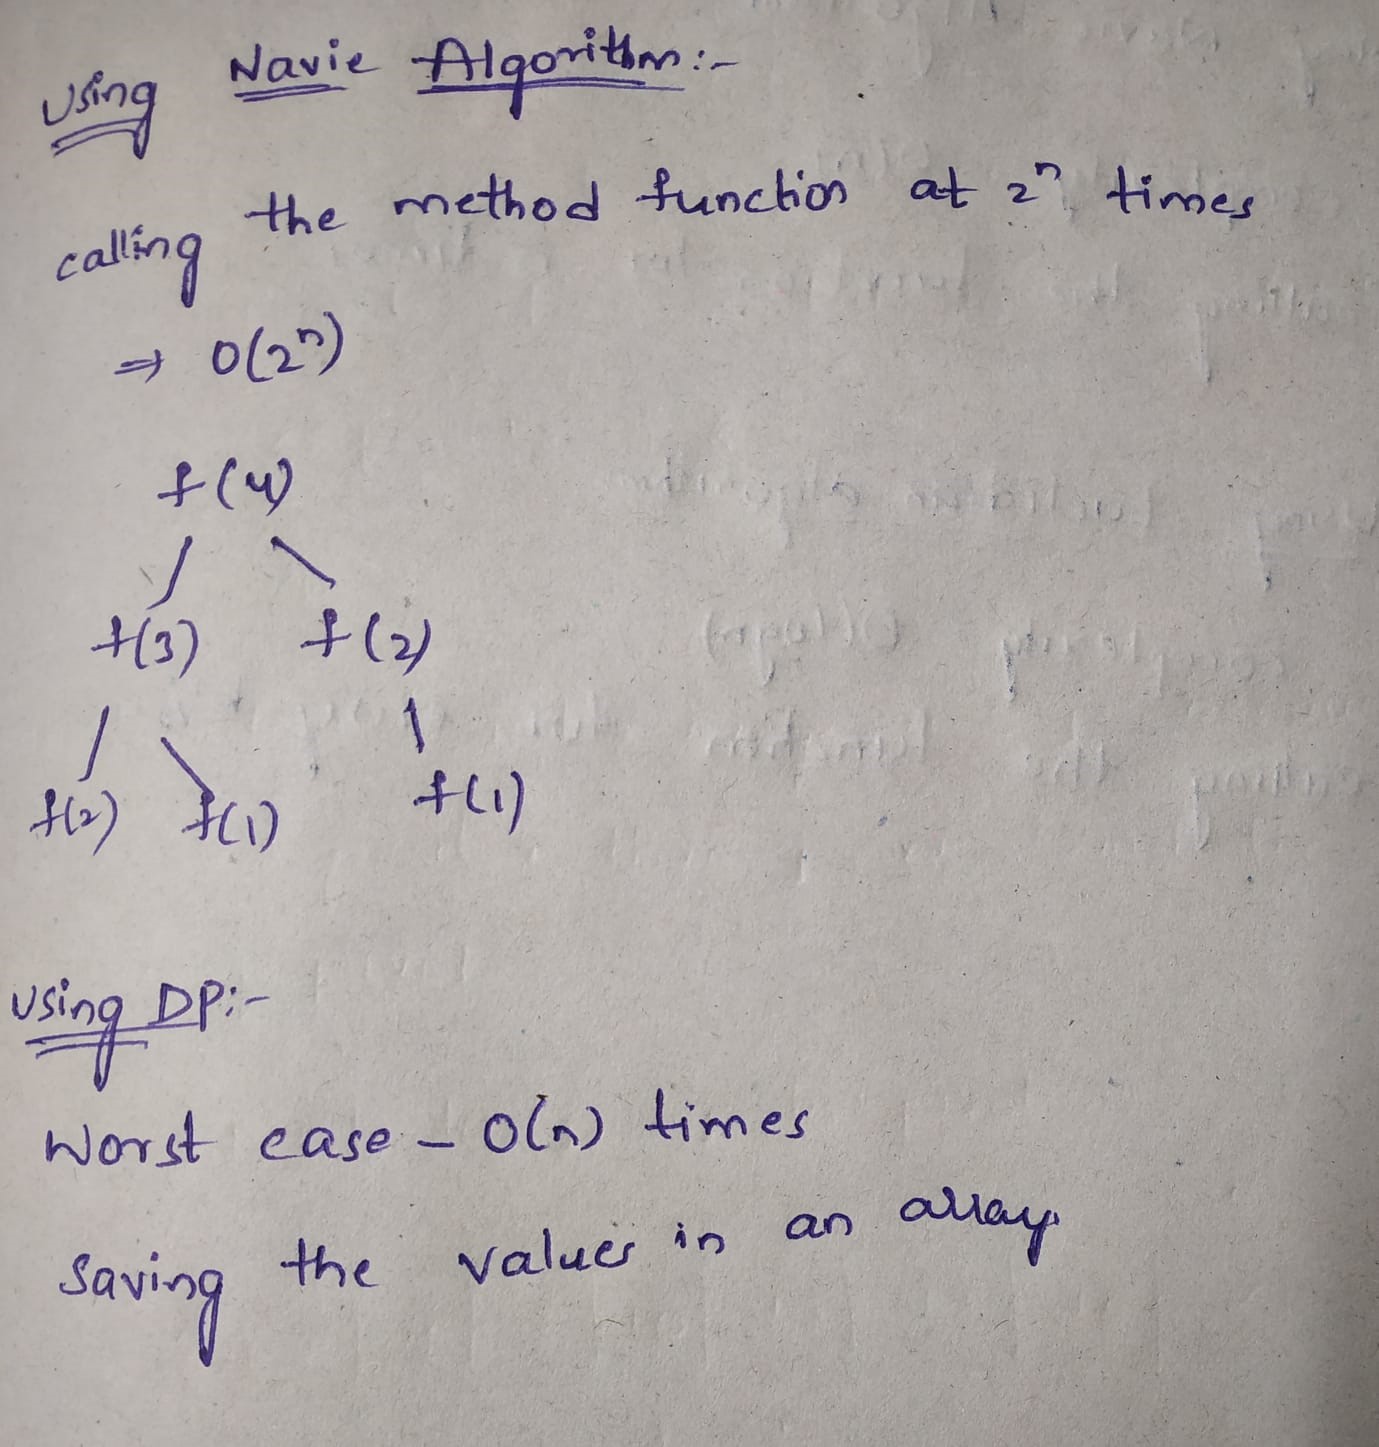 Using Navie Algorithm:-
calling the method function at 2ⁿ times
⇒ O(2ⁿ)
f(4)
f(3) f(2)
f(2) f(1) f(1)
Using DP:-
Worst case - O(n) times
Saving the values in an array.